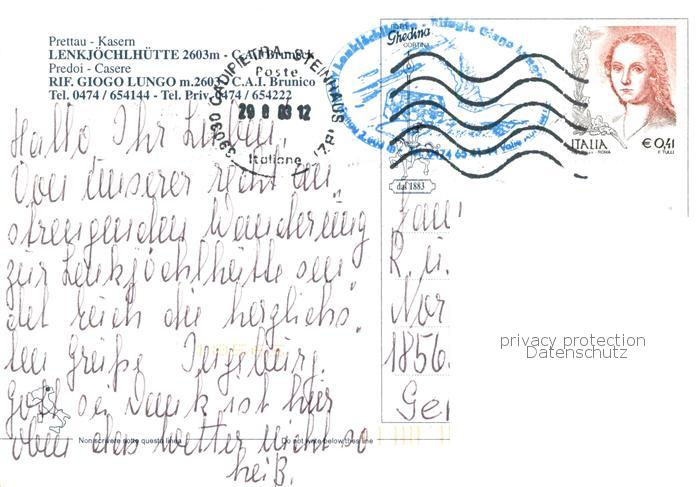 Prettau - Kasern
LENKJÖCHLHÜTTE 2603m - C.A.I. Brunico
Predoi - Casere
RIF. GIOGO LUNGO m.2603 - C.A.I. Brunico
Tel. 0474 / 654144 - Tel. Priv. 0474 / 654222
39030 CADIPIETRA - STEINHAUS
Poste
29 8 03 12
Italiane
Ghedina
CORTINA
dal 1883
Lenkjöchlhütte - Rifugio Giogo Lungo
ITALIA
€ 0,41
ROMA
F. TULLI
Hallo Ihr Lieben,
Von unserer recht an„
strengenden Wanderung
zur Lenkjöchlhütte sen„
det euch die herzlichs„
ten Grüße Ingeburg.
Gott sei Dank ist hier
oben das Wetter nicht so
heiß.
Fam
R. u.
Nor
1856
Ger
privacy protection
Datenschutz
Non scrivere sotto questa linea
Do not write below this line